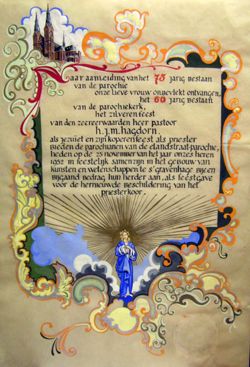 Naar aanleiding van het 75 jarig bestaan
van de parochie
onze lieve vrouw onbevlekt ontvangen,
het 60 jarig bestaan
van de parochiekerk,
het zilveren feest
van den zeereerwaarden heer pastoor
h.j.m. hagdorn.
als jezuiet en zijn koperen feest als priester
bieden de parochianen van de elandstraat-parochie,
heden op de 25 november van het jaar onzes heren
1952 in feestelijk samenzijn in het gebouw van
kunsten en wetenschappen te 's gravenhage bijeen
bijgaand bedrag hun herder aan, als feestgave
voor de hernieuwde beschildering van het
priesterkoor.